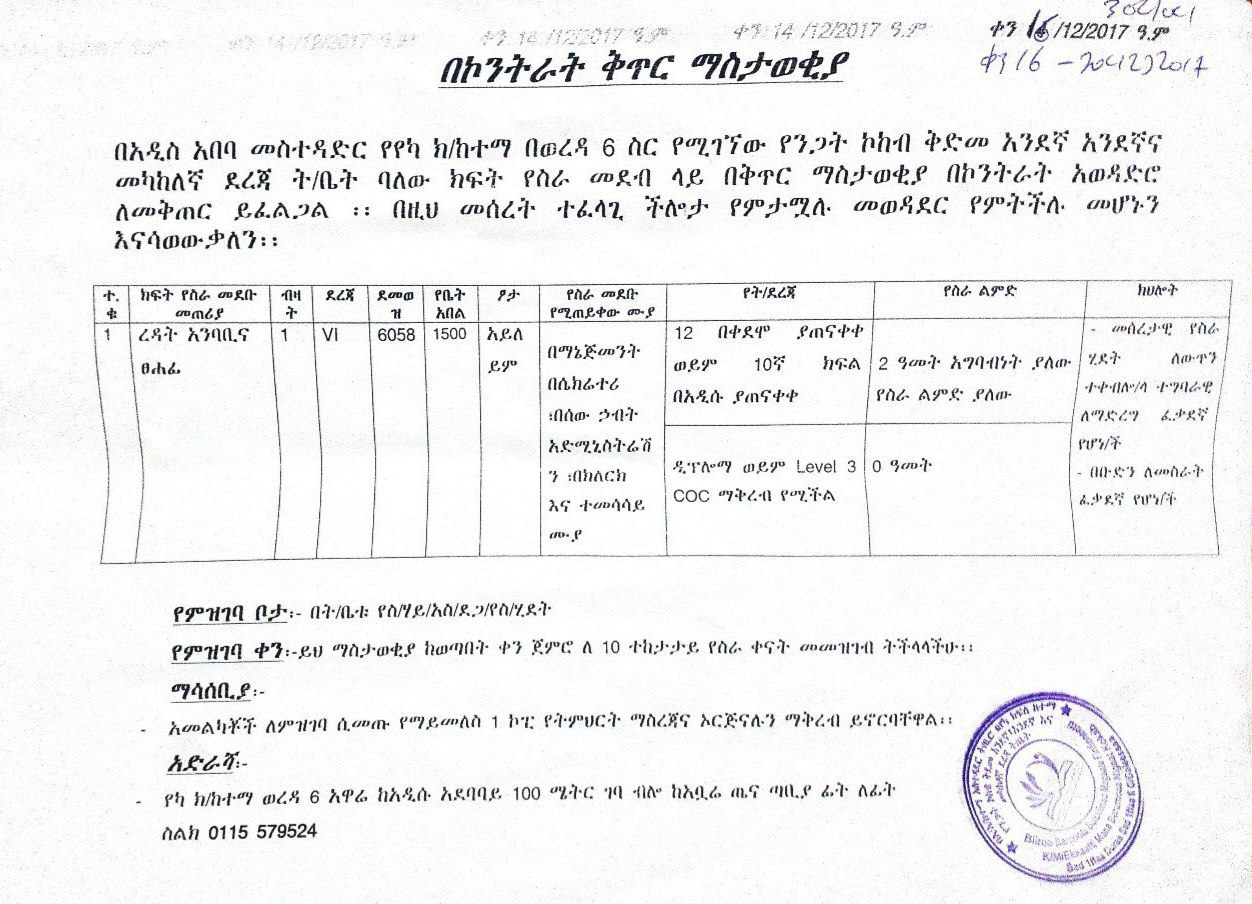 ቀን 14 /12/2017 ዓ.ም
ቀን 14 /12/2017 ዓ.ም
ቀን 14 /12/2017 ዓ.ም
ቀን 16/12/2017 ዓ.ም
በኮንትራት ቅጥር ማስታወቂያ
በአዲስ አበባ መስተዳድር የየካ ክ/ከተማ በወረዳ 6 ስር የሚገኘው የንጋት ኮከብ ቅድመ አንደኛ አንደኛና
መካከለኛ ደረጃ ት/ቤት ባለው ክፍት የስራ መደብ ላይ በቅጥር ማስታወቂያ በኮንትራት አወዳድሮ
ለመቅጠር ይፈልጋል ፡፡ በዚህ መሰረት ተፈላጊ ችሎታ የምታሟሉ መወዳደር የምትችሉ መሆኑን
እናሳወውቃለን፡፡
ተ.ቁ
ክፍት የስራ መደቡ
መጠሪያ
ብዛት
ደረጃ
ደመወዝ
የቤት
አበል
ፆታ
የስራ መደቡ
የሚጠይቀው ሙያ
የት/ደረጃ
የስራ ልምድ
ክህሎት
1
ረዳት አንባቢና
ፀሐፊ
1
VI
6058
1500
አይለ
ይም
በማኔጅመንት
በሴክሬተሪ
፡በሰው ኃብት
አድሚኒስትሬሽ
ን ፡በክለርክ
እና ተመሳሳይ
ሙያ
12 በቀደሞ ያጠናቀቀ
ወይም 10ኛ ክፍል
በአዲሱ ያጠናቀቀ
2 ዓመት አግባብነት ያለው
የስራ ልምድ ያለው
ዲፕሎማ ወይም Level 3
COC ማቅረብ የሚችል
0 ዓመት
- መሰረታዊ የስራ
ሂደት ለውጥን
ተቀብሎ/ላ ተግባራዊ
ለማድረግ ፈቃደኛ
የሆነ/ች
- በቡድን ለመስራት
ፈቃደኛ የሆነ/ች
የምዝገባ ቦታ፡- በት/ቤቱ የስ/ሃይ/አስ/ደጋ/የስ/ሂደት
የምዝገባ ቀን፡-ይህ ማስታወቂያ ከወጣበት ቀን ጀምሮ ለ 10 ተከታታይ የስራ ቀናት መመዝገብ ትችላላችሁ፡፡
ማሳሰቢያ፡-
- አመልካቾች ለምዝገባ ሲመጡ የማይመለስ 1 ኮፒ የትምህርት ማስረጃና ኦርጅናሉን ማቅረብ ይኖርባቸዋል፡፡
አድራሻ፡-
- የካ ክ/ከተማ ወረዳ 6 አዋሬ ከአዲሱ አደባባይ 100 ሜትር ገባ ብሎ ከአቧሬ ጤና ጣቢያ ፊት ለፊት
ስልክ 0115 579524